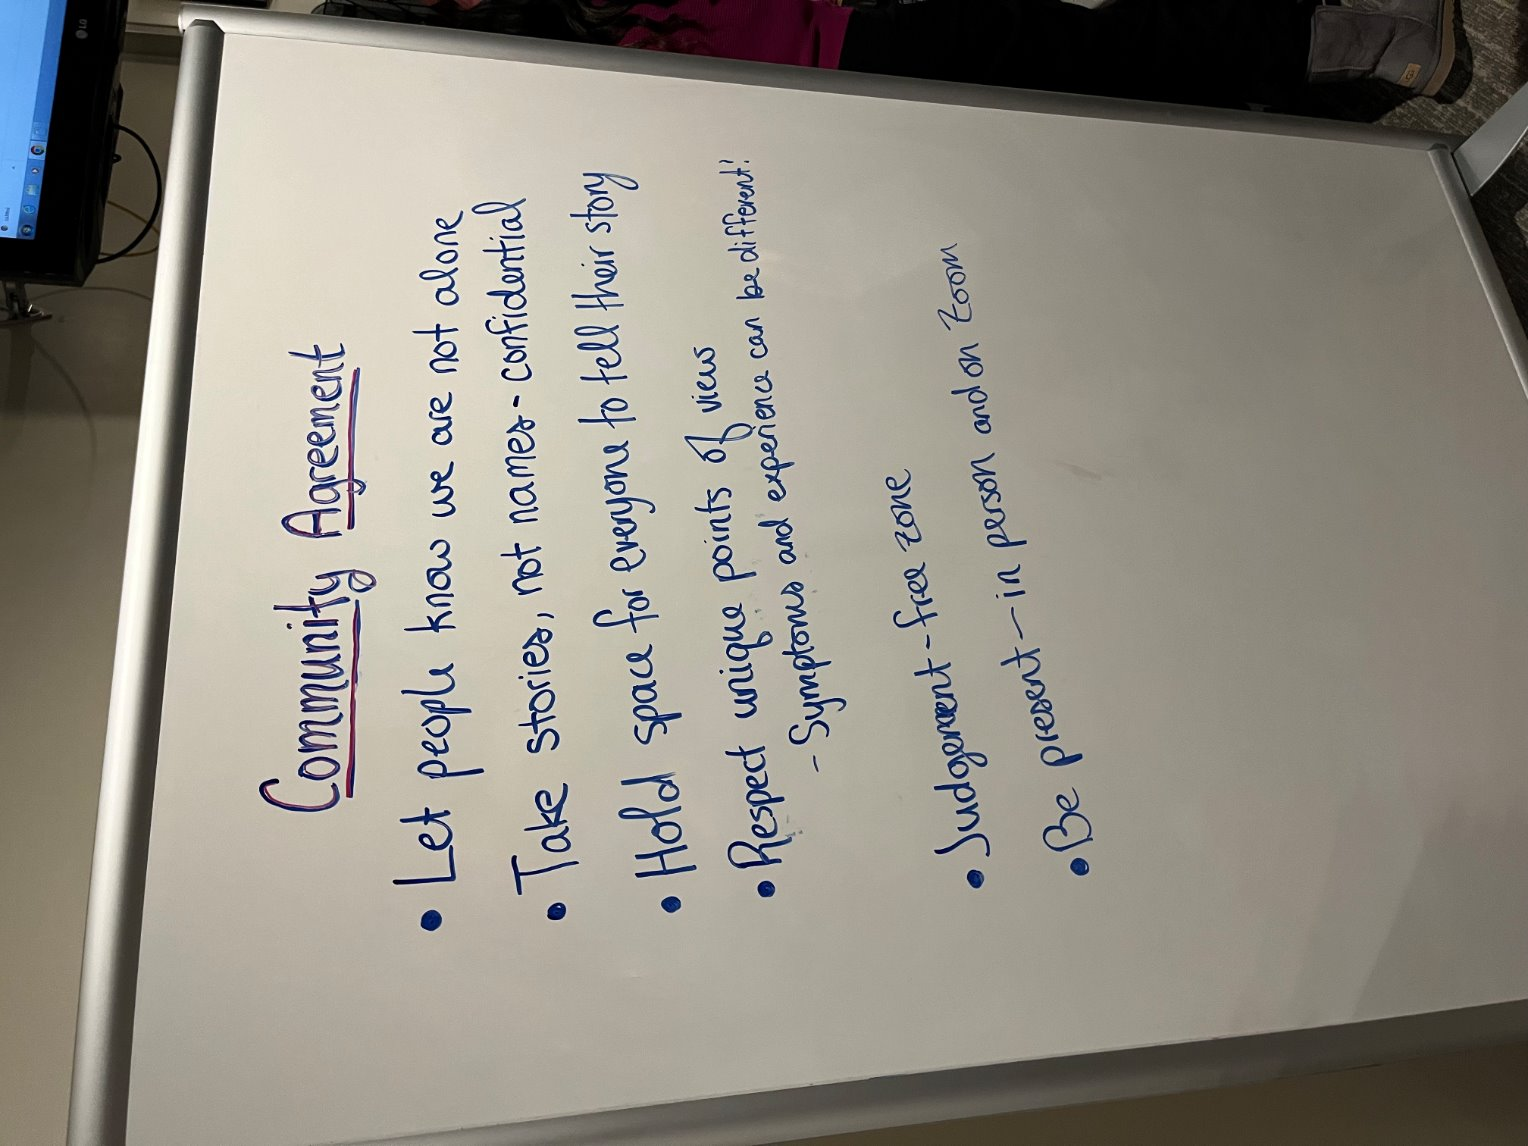 Community Agreement
• Let people know we are not alone
• Take stories, not names - confidential
• Hold space for everyone to tell their story
• Respect unique points of view
- Symptoms and experience can be different!
• Judgement - free zone
• Be present - in person and on Zoom
LG
UGG